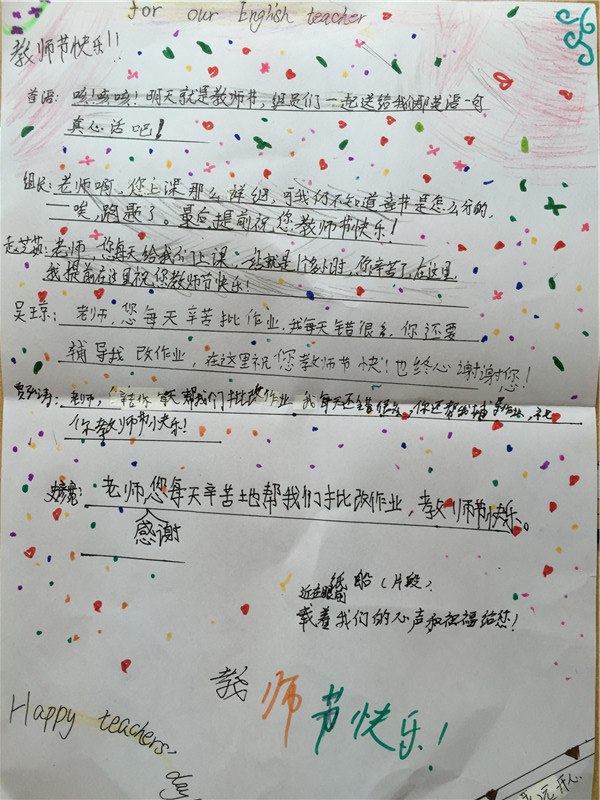 for our English teacher
教师节快乐!!
首语: 咳!咳咳!明天就是教师节,组员们一起送给我们那英语一句
真心话吧!
组长: 老师啊,您上课那么详细,可我们不知道章节是怎么分的,
唉,跑题了。最后提前祝您教师节快乐!
老师,您每天给我们上课,一站就是1个多小时,你辛苦了,在这里
我提前在这里祝您教师节快乐!
吴琼: 老师,您每天辛苦批作业,我每天错很多,你还要
辅导我改作业,在这里祝您教师节快!也终心谢谢您!
老师,帮我们批改作业,我每天还错很多,你还帮我辅
你教师节快乐!
老师您每天辛苦地帮我们批改作业,教师节快乐。
感谢
纸船(片段)
载着我们的心声和祝福给您!
教师节快乐!
Happy teachers,
day